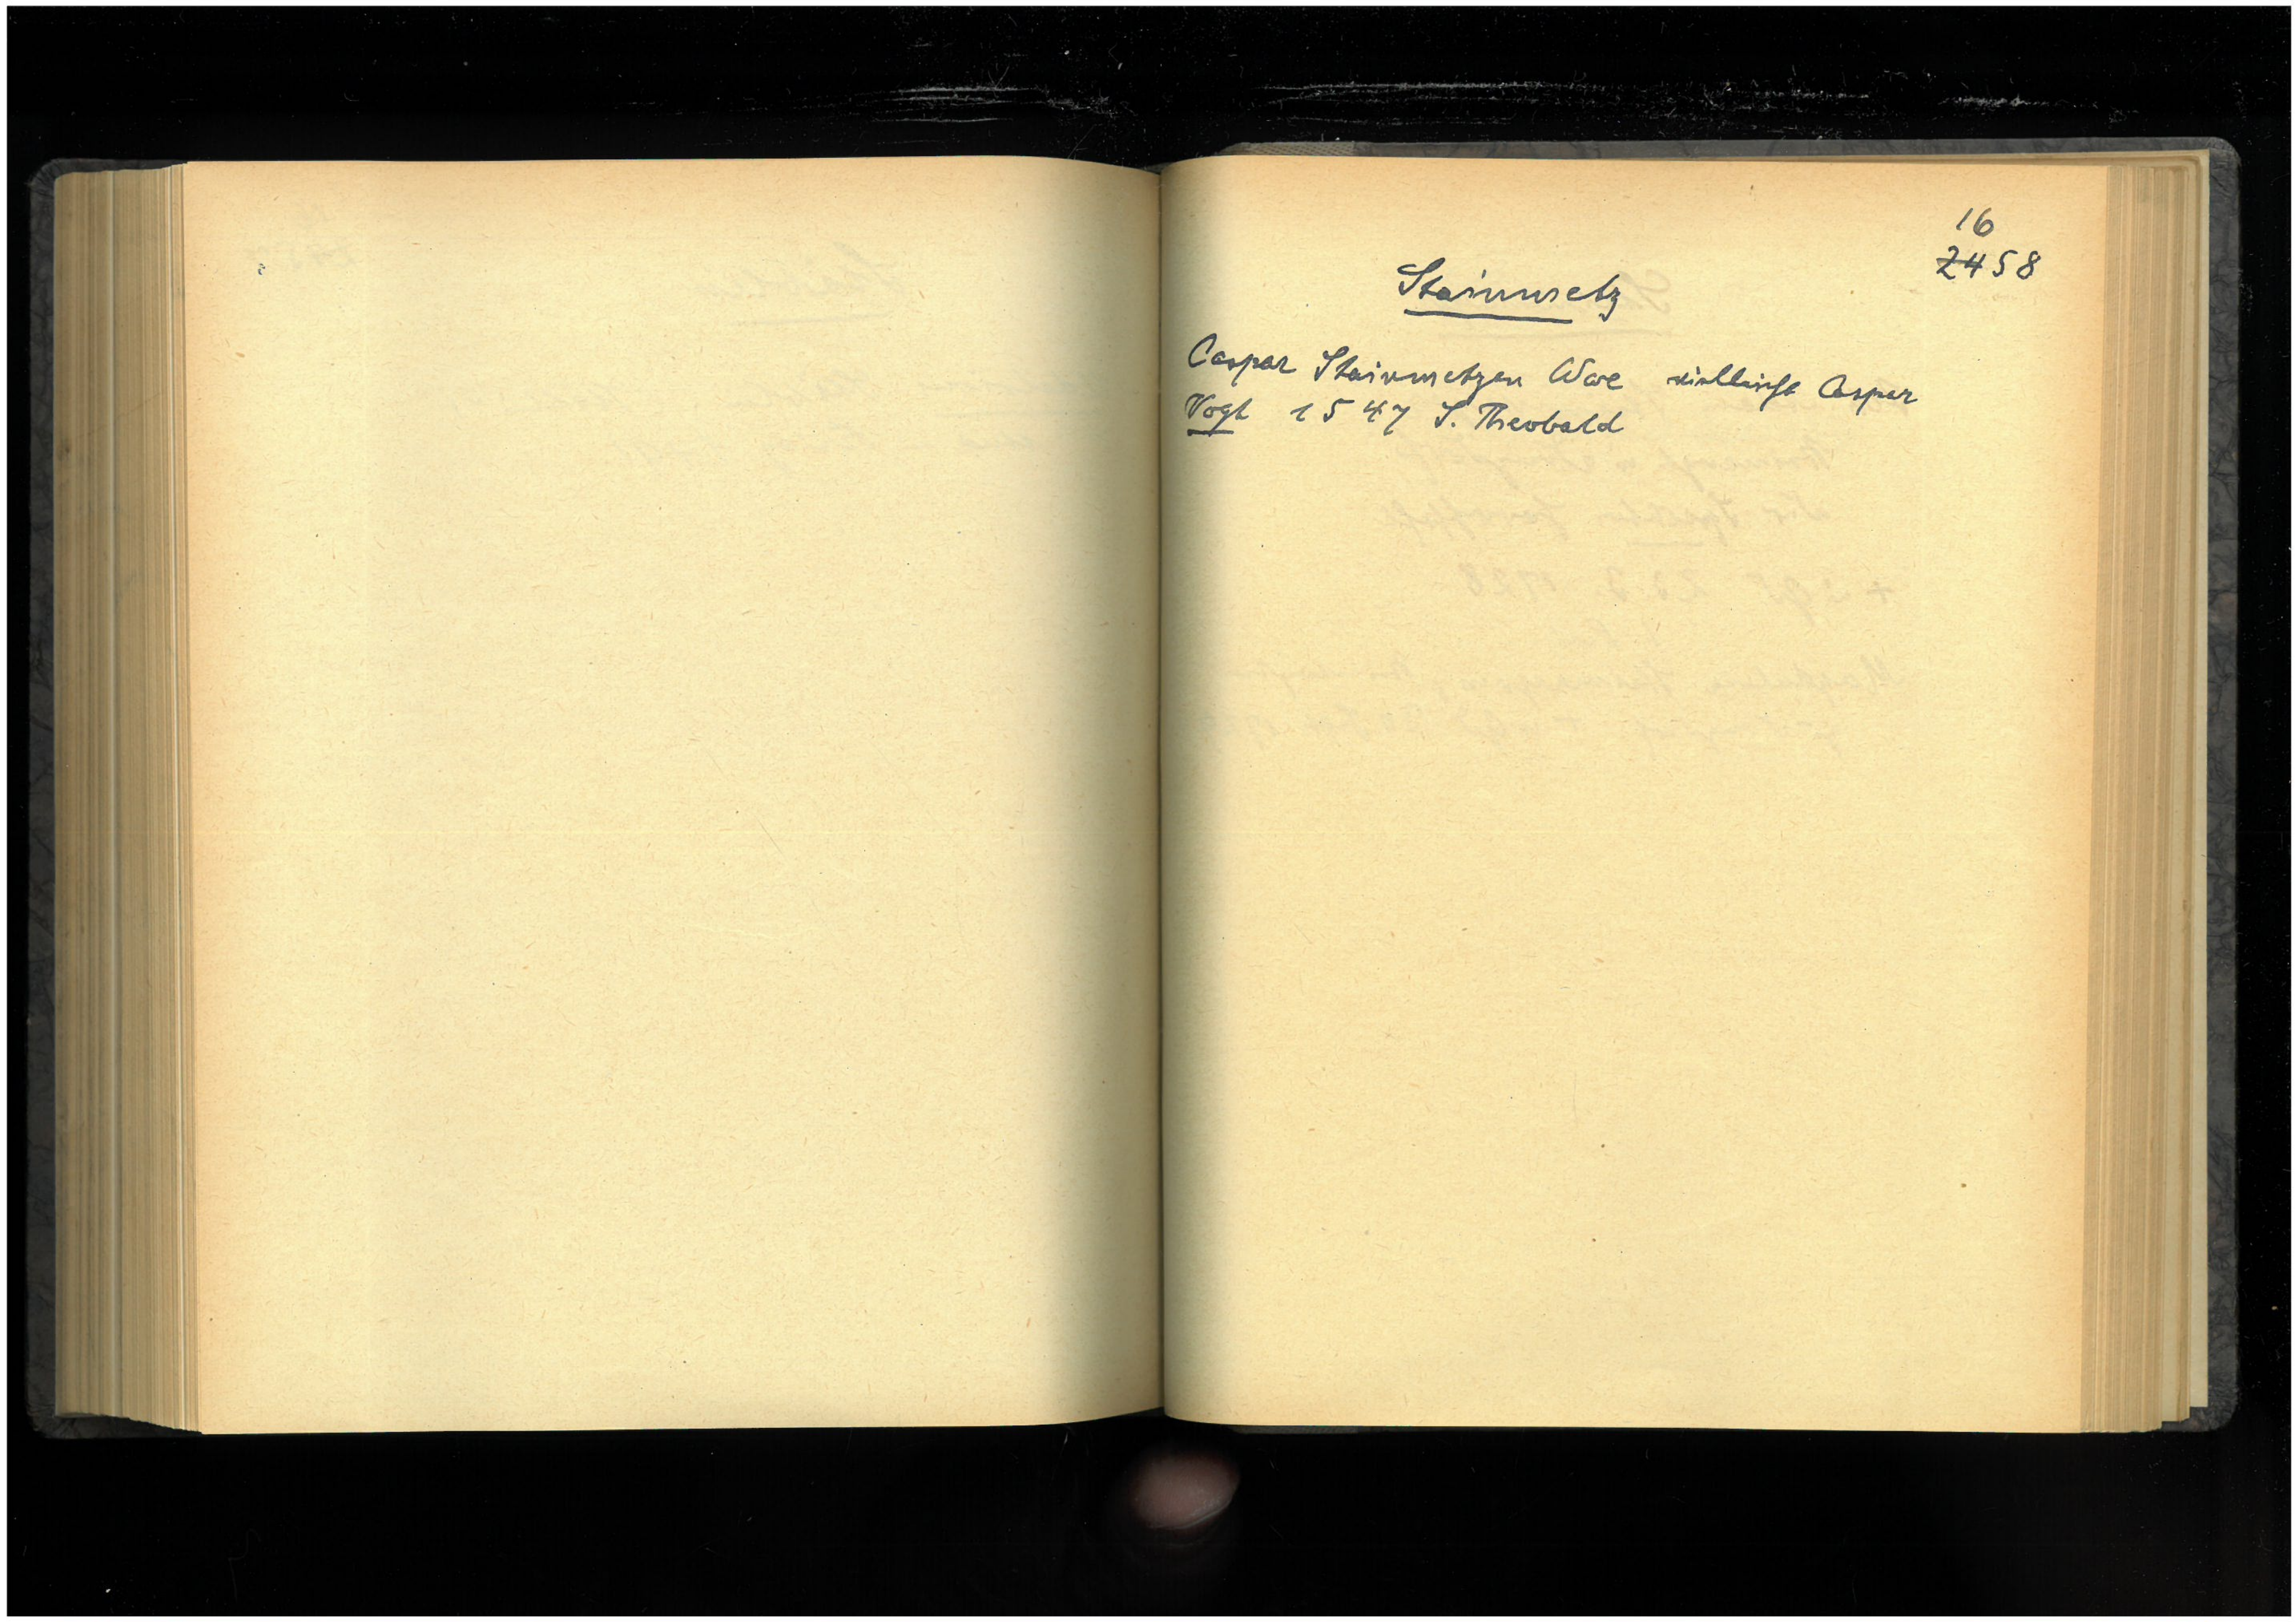 16
2458
Stainmetz
Caspar Stainmetzen Wwe vielleicht Caspar
Vogt 1547 S. Theobald